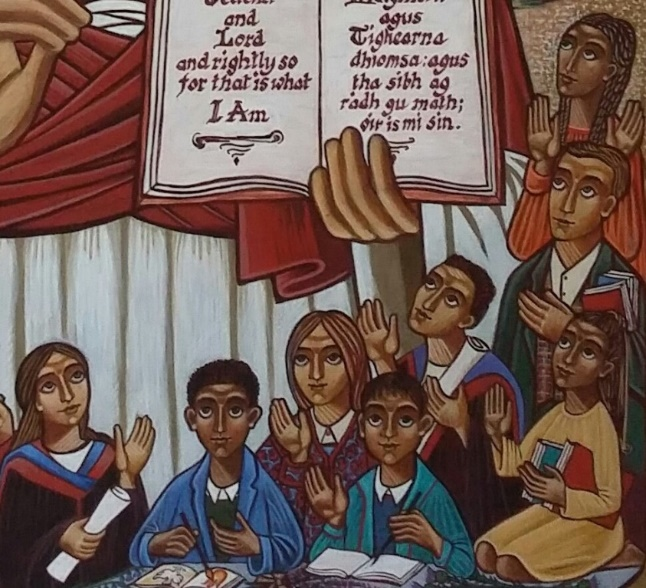 and
Lord
and rightly so
for that is what
I Am
agus
Tighearna
dhiomsa: agus
tha sibh ag
radh gu math;
oir is mi sin.